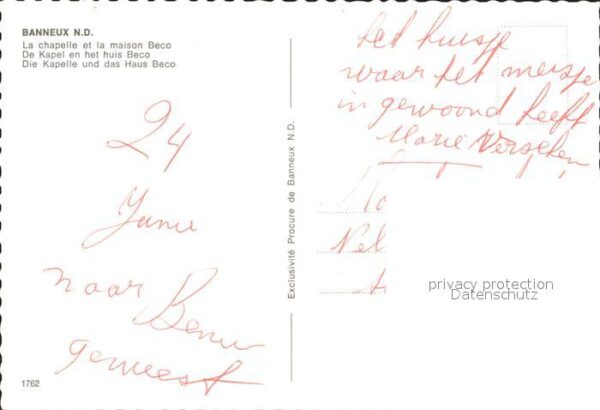 BANNEUX N.D.
La chapelle et la maison Beco
De Kapel en het huis Beco
Die Kapelle und das Haus Beco
24
Junie
naar Benne
geweest
1762
Exclusivité Procure de Banneux N.D.
het huisje
waar het meisje
in gewoond heeft
Marie Verschen
privacy protection
Datenschutz